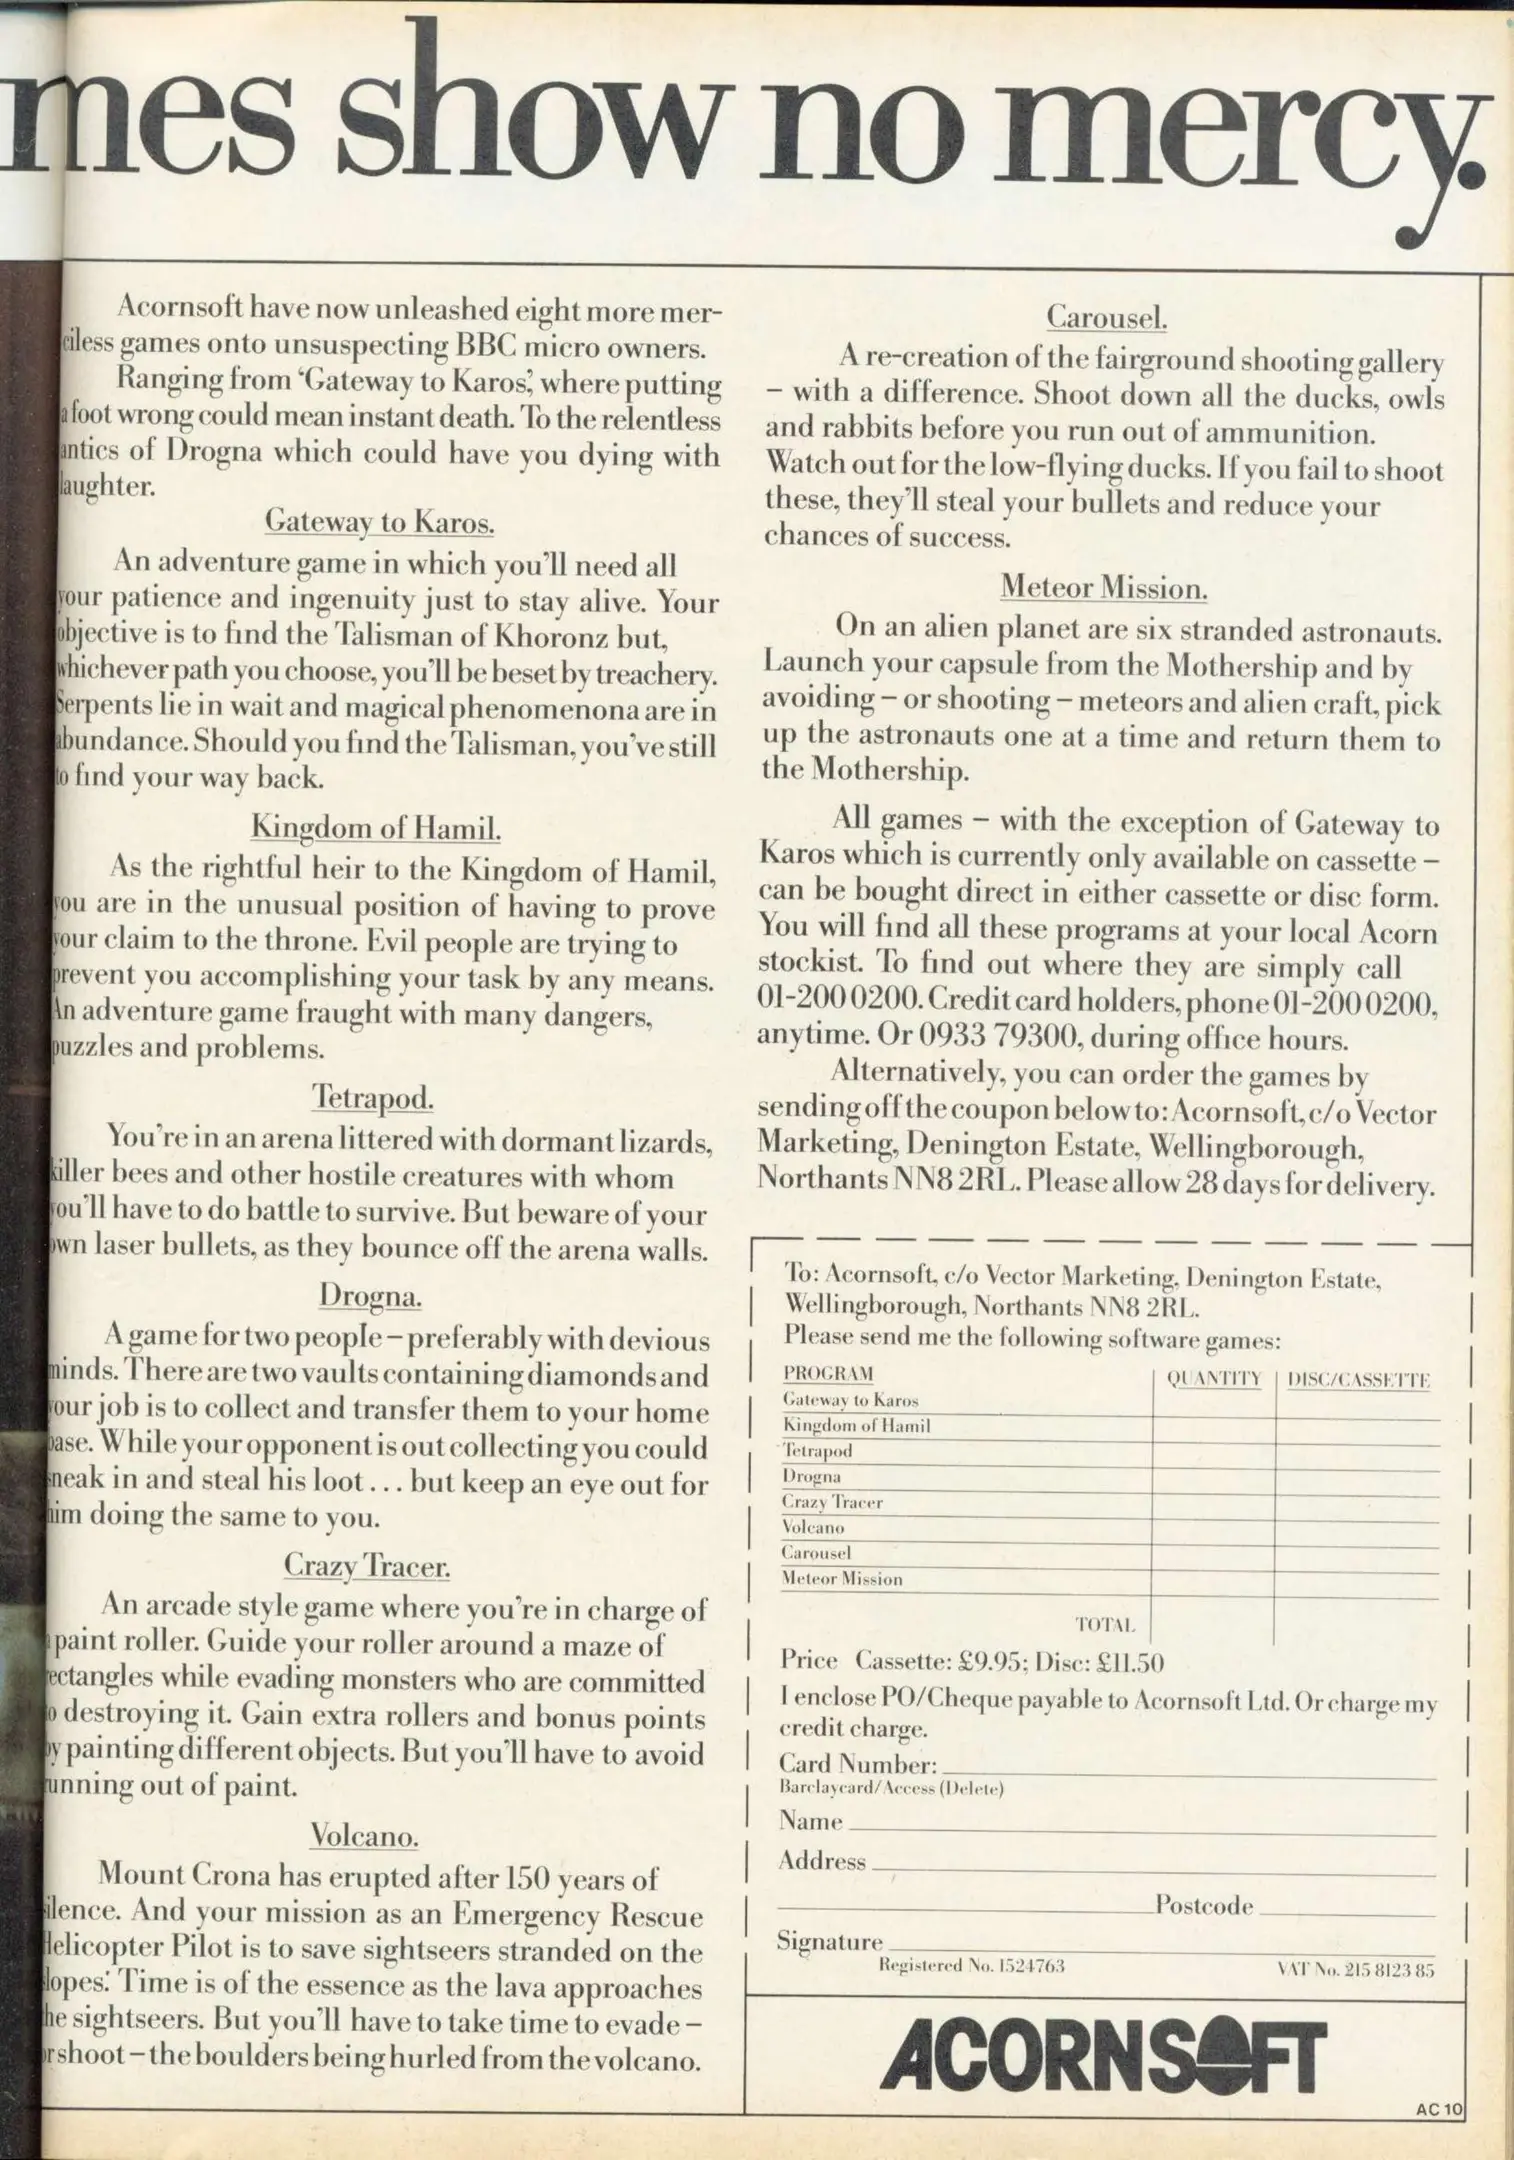 mes show no mercy.
Acornsoft have now unleashed eight more mer-
ciless games onto unsuspecting BBC micro owners.
Ranging from ‘Gateway to Karos’, where putting
a foot wrong could mean instant death. To the relentless
antics of Drogna which could have you dying with
laughter.
Gateway to Karos.
An adventure game in which you’ll need all
your patience and ingenuity just to stay alive. Your
objective is to find the Talisman of Khoronz but,
whichever path you choose, you’ll be beset by treachery.
Serpents lie in wait and magical phenomenona are in
abundance. Should you find the Talisman, you’ve still
to find your way back.
Kingdom of Hamil.
As the rightful heir to the Kingdom of Hamil,
you are in the unusual position of having to prove
your claim to the throne. Evil people are trying to
prevent you accomplishing your task by any means.
An adventure game fraught with many dangers,
puzzles and problems.
Tetrapod.
You’re in an arena littered with dormant lizards,
killer bees and other hostile creatures with whom
you’ll have to do battle to survive. But beware of your
own laser bullets, as they bounce off the arena walls.
Drogna.
A game for two people – preferably with devious
minds. There are two vaults containing diamonds and
your job is to collect and transfer them to your home
base. While your opponent is out collecting you could
sneak in and steal his loot... but keep an eye out for
him doing the same to you.
Crazy Tracer.
An arcade style game where you’re in charge of
a paint roller. Guide your roller around a maze of
rectangles while evading monsters who are committed
to destroying it. Gain extra rollers and bonus points
by painting different objects. But you’ll have to avoid
running out of paint.
Volcano.
Mount Crona has erupted after 150 years of
silence. And your mission as an Emergency Rescue
Helicopter Pilot is to save sightseers stranded on the
slopes. Time is of the essence as the lava approaches
the sightseers. But you’ll have to take time to evade –
or shoot – the boulders being hurled from the volcano.
Carousel.
A re-creation of the fairground shooting gallery
– with a difference. Shoot down all the ducks, owls
and rabbits before you run out of ammunition.
Watch out for the low-flying ducks. If you fail to shoot
these, they’ll steal your bullets and reduce your
chances of success.
Meteor Mission.
On an alien planet are six stranded astronauts.
Launch your capsule from the Mothership and by
avoiding – or shooting – meteors and alien craft, pick
up the astronauts one at a time and return them to
the Mothership.
All games – with the exception of Gateway to
Karos which is currently only available on cassette –
can be bought direct in either cassette or disc form.
You will find all these programs at your local Acorn
stockist. To find out where they are simply call
01-200 0200. Credit card holders, phone 01-200 0200,
anytime. Or 0933 79300, during office hours.
Alternatively, you can order the games by
sending off the coupon below to: Acornsoft, c/o Vector
Marketing, Denington Estate, Wellingborough,
Northants NN8 2RL. Please allow 28 days for delivery.
To: Acornsoft, c/o Vector Marketing, Denington Estate,
Wellingborough, Northants NN8 2RL.
Please send me the following software games:
PROGRAM QUANTITY DISC/CASSETTE
Gateway to Karos
Kingdom of Hamil
Tetrapod
Drogna
Crazy Tracer
Volcano
Carousel
Meteor Mission
TOTAL
Price Cassette: £9.95; Disc: £11.50
I enclose PO/Cheque payable to Acornsoft Ltd. Or charge my
credit charge.
Card Number:
Barclaycard/Access (Delete)
Name
Address
Postcode
Signature
Registered No. 1524763 VAT No. 215 8123 85
ACORNSOFT
AC 10